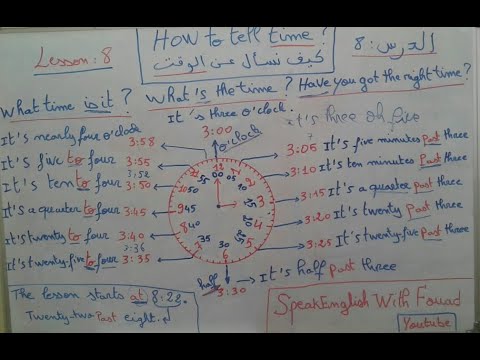 Lesson: 8
How to tell time?
كيف نسأل عن الوقت
الدرس: 8
What time is it?
What's the time?
Have you got the right time?
It's three o'clock.
It's three oh five
3:00
o'clock
It's nearly four o'clock 3:58
It's five to four 3:55
3:52
It's ten to four 3:50
It's a quarter to four 3:45
It's twenty to four 3:40
3:36
It's twenty-five to four 3:35
3:05 It's five minutes past three
3:10 It's ten minutes past three
3:15 It's a quarter past three
3:20 It's twenty past three
3:25 It's twenty-five past three
12 1 2 3 4 5 6 7 8 9 10 11
00 05 10 15 20 25 30 35 40 45 50 55
half 3:30 It's half past three
The lesson starts at 8:22.
Twenty-two past eight.
SpeakEnglish With Fouad
Youtube